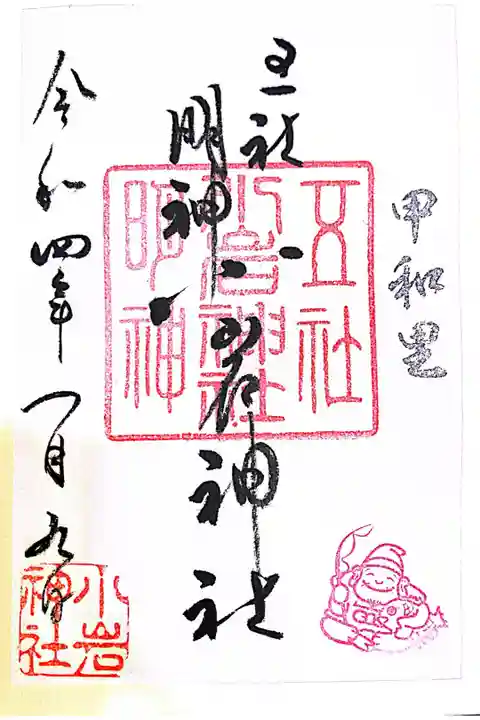 甲和里
五社
明神
小岩神社
五社
小岩神社
明神
令和四年一月九日
小岩
神社